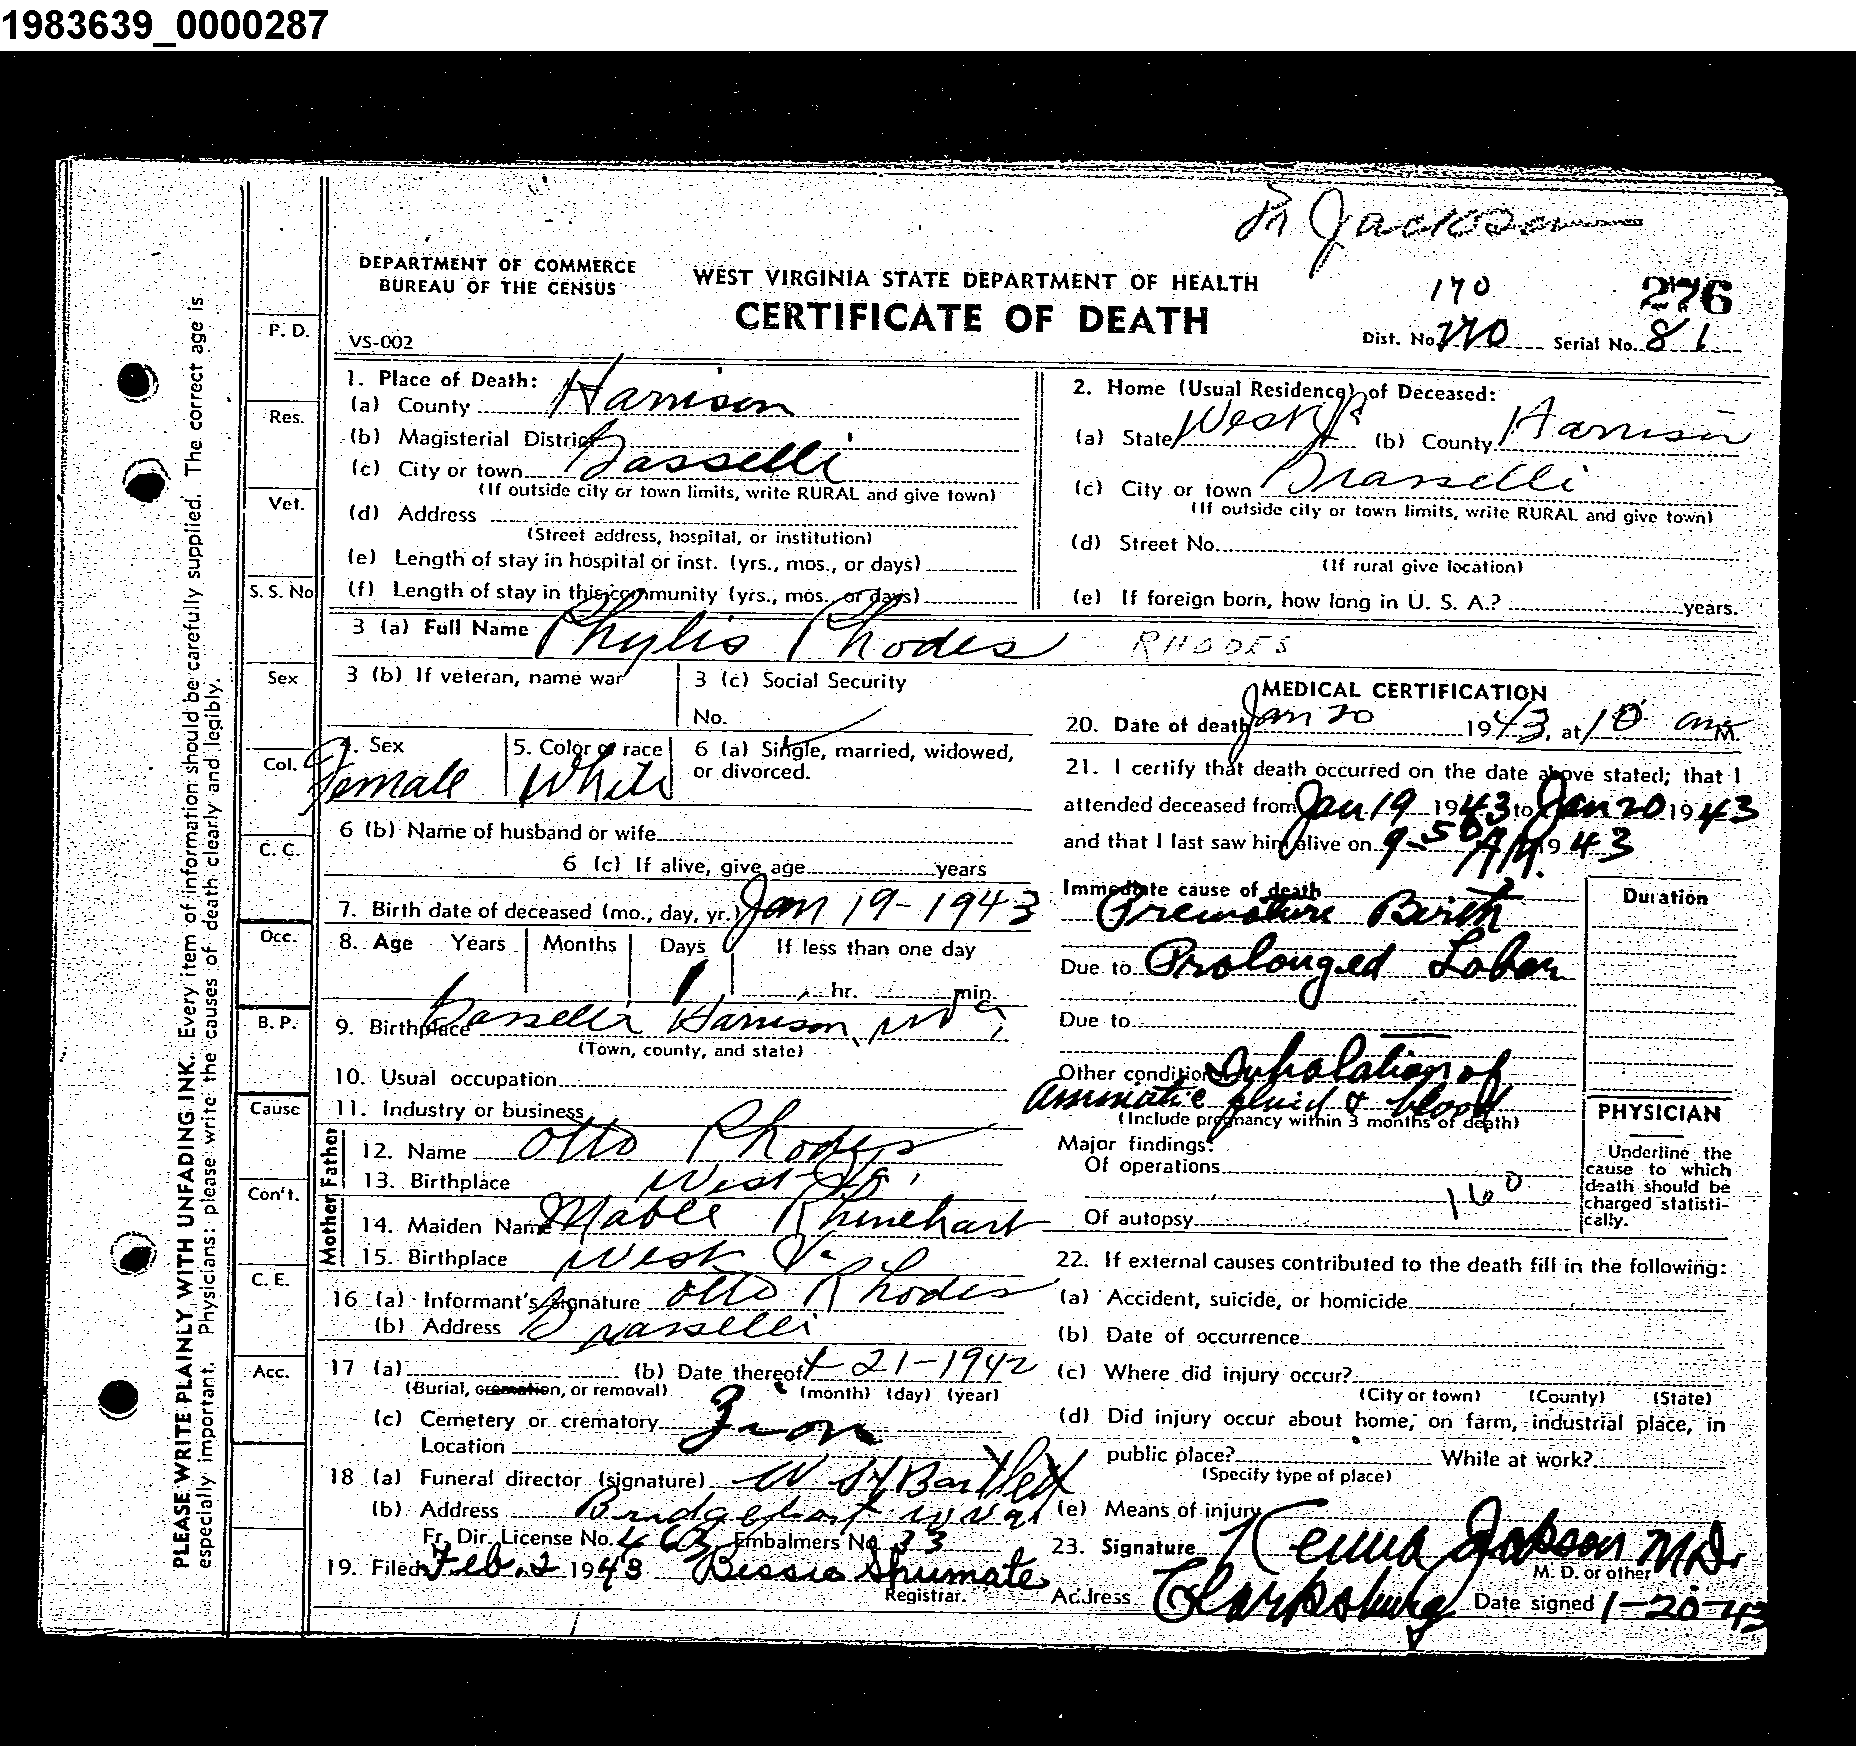 1983639_0000287
Dr Jackson
DEPARTMENT OF COMMERCE
BUREAU OF THE CENSUS
WEST VIRGINIA STATE DEPARTMENT OF HEALTH
CERTIFICATE OF DEATH
VS-002
170
276
Dist. No. 170 Serial No. 81
PLEASE WRITE PLAINLY WITH UNFADING INK. Every item of information should be carefully supplied. The correct age is
especially important. Physicians: please write the causes of death clearly and legibly.
P. D.
Res.
Vet.
S. S. No
Sex
Col.
C. C.
Occ.
B. P.
Cause
Con't.
C. E.
Acc.
1. Place of Death:
(a) County Harrison
(b) Magisterial District
(c) City or town Gasselli
(If outside city or town limits, write RURAL and give town)
(d) Address
(Street address, hospital, or institution)
(e) Length of stay in hospital or inst. (yrs., mos., or days)
(f) Length of stay in this community (yrs., mos. or days)
2. Home (Usual Residence) of Deceased:
(a) State West Va (b) County Harrison
(c) City or town Grasselli
(If outside city or town limits, write RURAL and give town)
(d) Street No.
(If rural give location)
(e) If foreign born, how long in U. S. A.? years.
3 (a) Full Name Phylis Rhodes RHODES
3 (b) If veteran, name war
3 (c) Social Security
No.
4. Sex Female
5. Color or race White
6 (a) Single, married, widowed,
or divorced.
6 (b) Name of husband or wife
6 (c) If alive, give age years
7. Birth date of deceased (mo., day, yr.) Jan 19-1943
8. Age Years Months Days If less than one day
1 hr. min.
9. Birthplace Gasselli Harrison W Va,
(Town, county, and state)
10. Usual occupation
11. Industry or business
Father
12. Name Otto Rhodes
13. Birthplace West Va,
Mother
14. Maiden Name Mable Rhinehart
15. Birthplace West Va
16 (a) Informant's signature Otto Rhodes
(b) Address Grasselli
17 (a) (b) Date thereof 1-21-1942
(Burial, cremation, or removal) (month) (day) (year)
(c) Cemetery or crematory Zion
Location
18 (a) Funeral director (signature) W Sy Bartlett
(b) Address Bridgeport W Va
Fr. Dir. License No. 463 Embalmers No 33
19. Filed Feb. 2 1943 Bessie Shumate
Registrar.
MEDICAL CERTIFICATION
20. Date of death Jan 20 1943, at 10 am M.
21. I certify that death occurred on the date above stated; that I
attended deceased from Jan 19 1943 to Jan 20 1943
and that I last saw him alive on 9-50 AM. 1943
Immediate cause of death
Premature Birth
Due to Prolonged Labor
Due to
Other conditions Inhalation of
amniotic fluid & blood
(Include pregnancy within 3 months of death)
Major findings:
Of operations
160
Of autopsy
Duration
PHYSICIAN
Underline the
cause to which
death should be
charged statisti-
cally.
22. If external causes contributed to the death fill in the following:
(a) Accident, suicide, or homicide
(b) Date of occurrence
(c) Where did injury occur?
(City or town) (County) (State)
(d) Did injury occur about home, on farm, industrial place, in
public place? While at work?
(Specify type of place)
(e) Means of injury
23. Signature Kenna Jackson M.D.
M. D. or other
Address Clarksburg Date signed 1-20-43